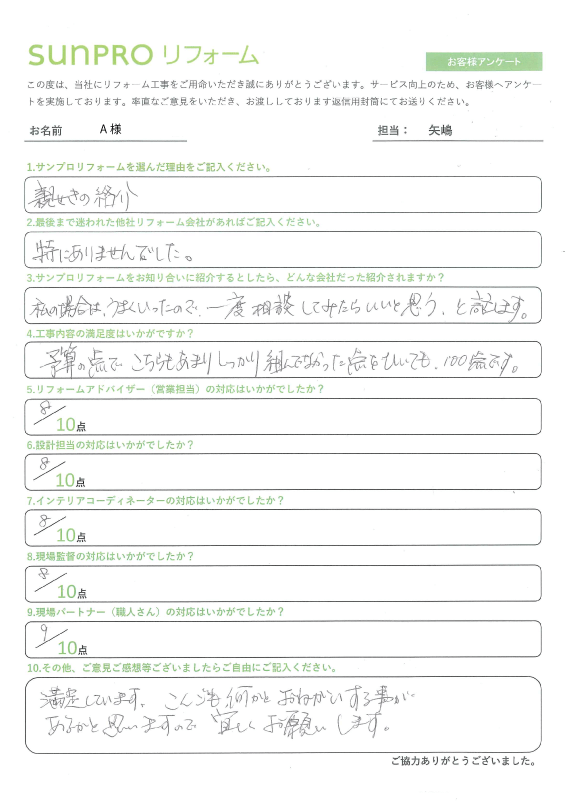 sunpro リフォーム
お客様アンケート
この度は、当社にリフォーム工事をご用命いただき誠にありがとうございます。サービス向上のため、お客様へアンケー
トを実施しております。率直なご意見をいただき、お渡ししております返信用封筒にてお送りください。
お名前 A様 担当： 矢嶋
1.サンプロリフォームを選んだ理由をご記入ください。
親せきの紹介
2.最後まで迷われた他社リフォーム会社があればご記入ください。
特にありませんでした。
3.サンプロリフォームをお知り合いに紹介するとしたら、どんな会社だった紹介されますか？
私の場合は、うまくいったので、一度相談してみたらいいと思う、と話します。
4.工事内容の満足度はいかがですか？
予算の点でこちらもあまりしっかり組んでなかった点をひいても、100点です。
5.リフォームアドバイザー（営業担当）の対応はいかがでしたか？
8/10点
6.設計担当の対応はいかがでしたか？
8/10点
7.インテリアコーディネーターの対応はいかがでしたか？
8/10点
8.現場監督の対応はいかがでしたか？
8/10点
9.現場パートナー（職人さん）の対応はいかがでしたか？
9/10点
10.その他、ご意見ご感想等ございましたらご自由にご記入ください。
満足しています。こんごも何かとおねがいする事が
あるかと思いますので宜しくお願いします。
ご協力ありがとうございました。